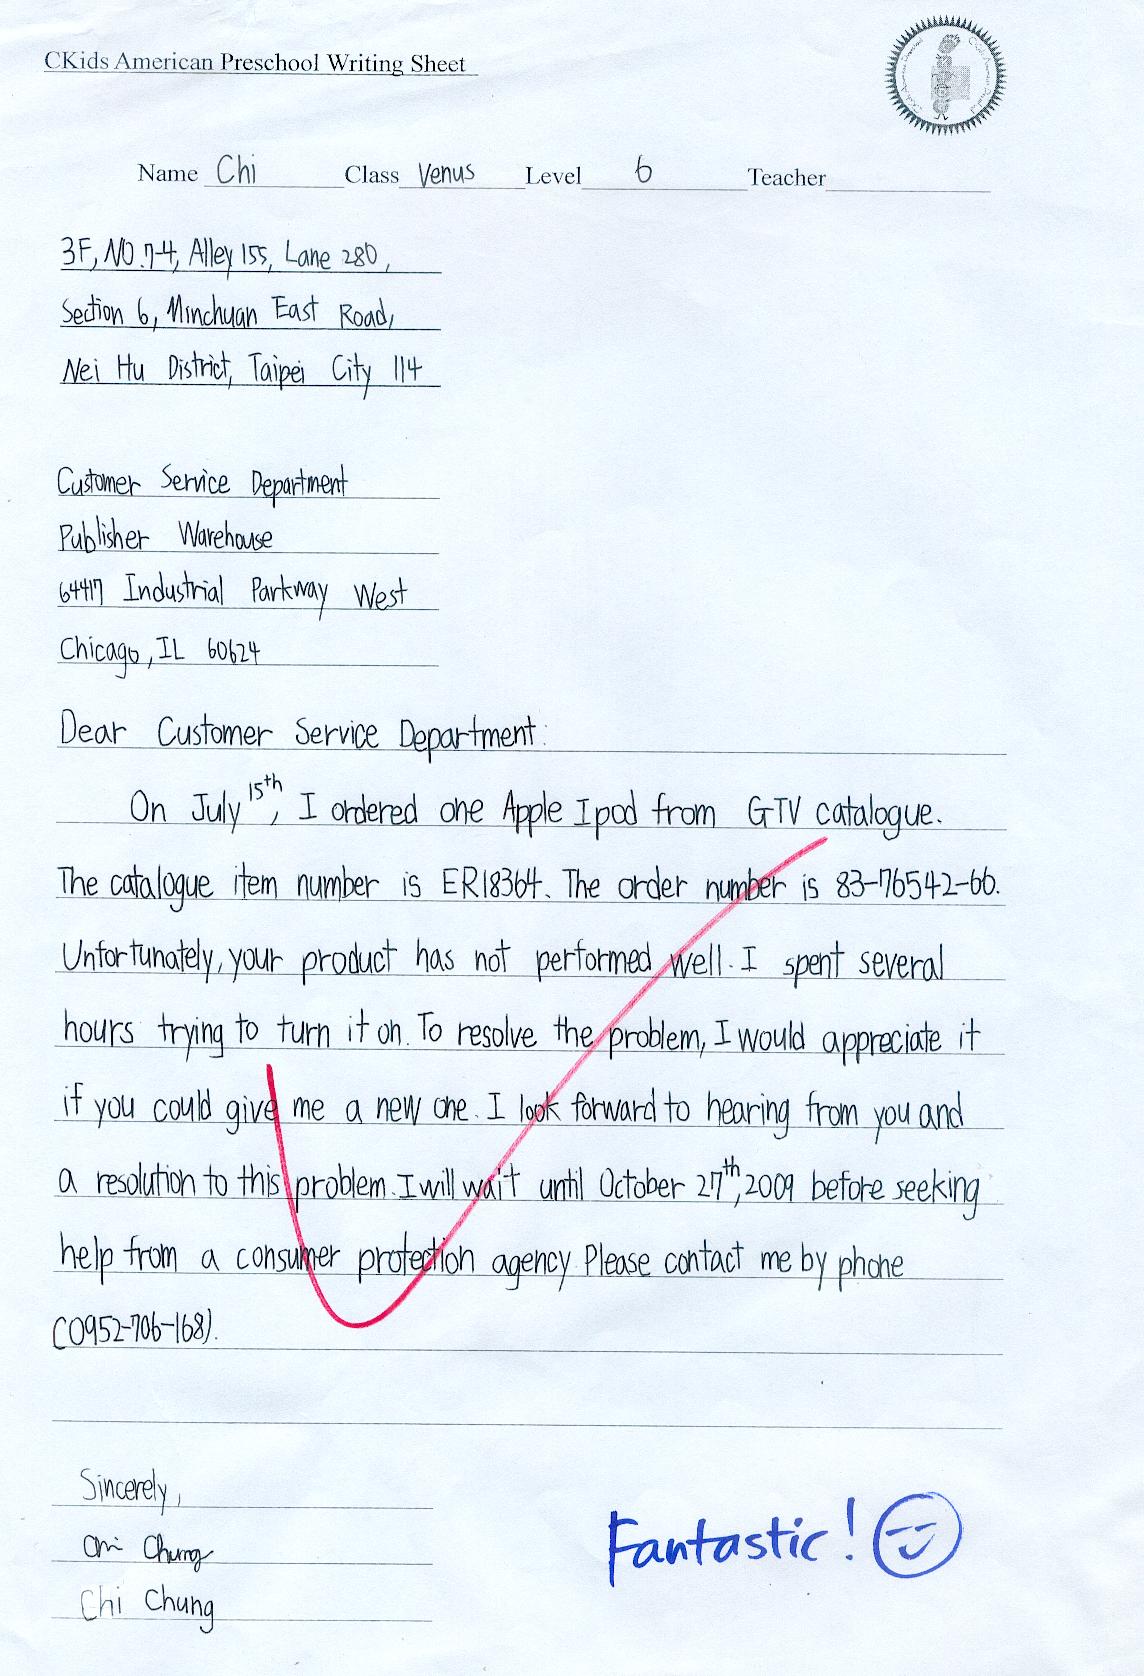 CKids American Preschool Writing Sheet
Name Chi Class Venus Level 6 Teacher
3F, NO.7-4, Alley 155, Lane 280,
Section 6, Minchuan East Road,
Nei Hu District, Taipei City 114
Customer Service Department
Publisher Warehouse
64417 Industrial Parkway West
Chicago, IL 60624
Dear Customer Service Department:
On July 15th, I ordered one Apple Ipod from GTV catalogue.
The catalogue item number is ER18364. The order number is 83-76542-66.
Unfortunately, your product has not performed well. I spent several
hours trying to turn it on. To resolve the problem, I would appreciate it
if you could give me a new one. I look forward to hearing from you and
a resolution to this problem. I will wait until October 27th, 2009 before seeking
help from a consumer protection agency. Please contact me by phone
(0952-706-168).
Sincerely,
Chi Chung
Chi Chung
Fantastic!